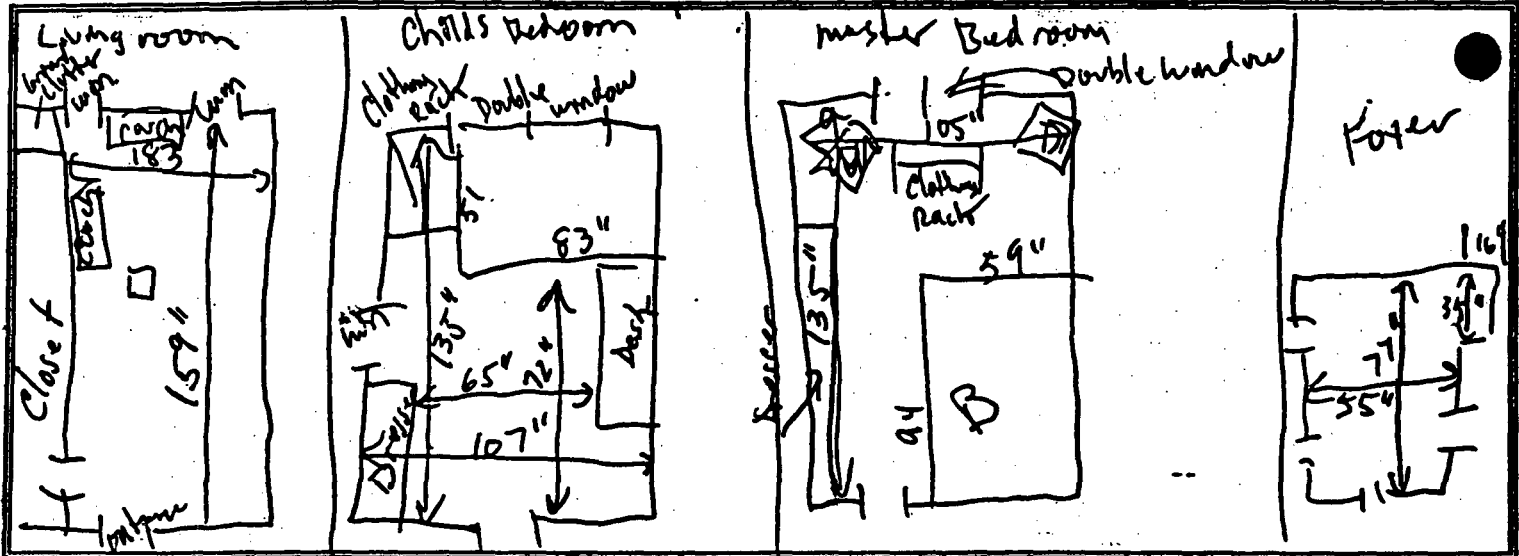 Living room
183
couch
Closet
159"
Childs Bedroom
Clothing
Rack
Double window
51
83"
135"
65"
72"
Desk
Dresser
107"
master Bedroom
Double window
105"
Clothing
Rack
59"
135"
Dresser
94
B
Foyer
35"
77"
55"